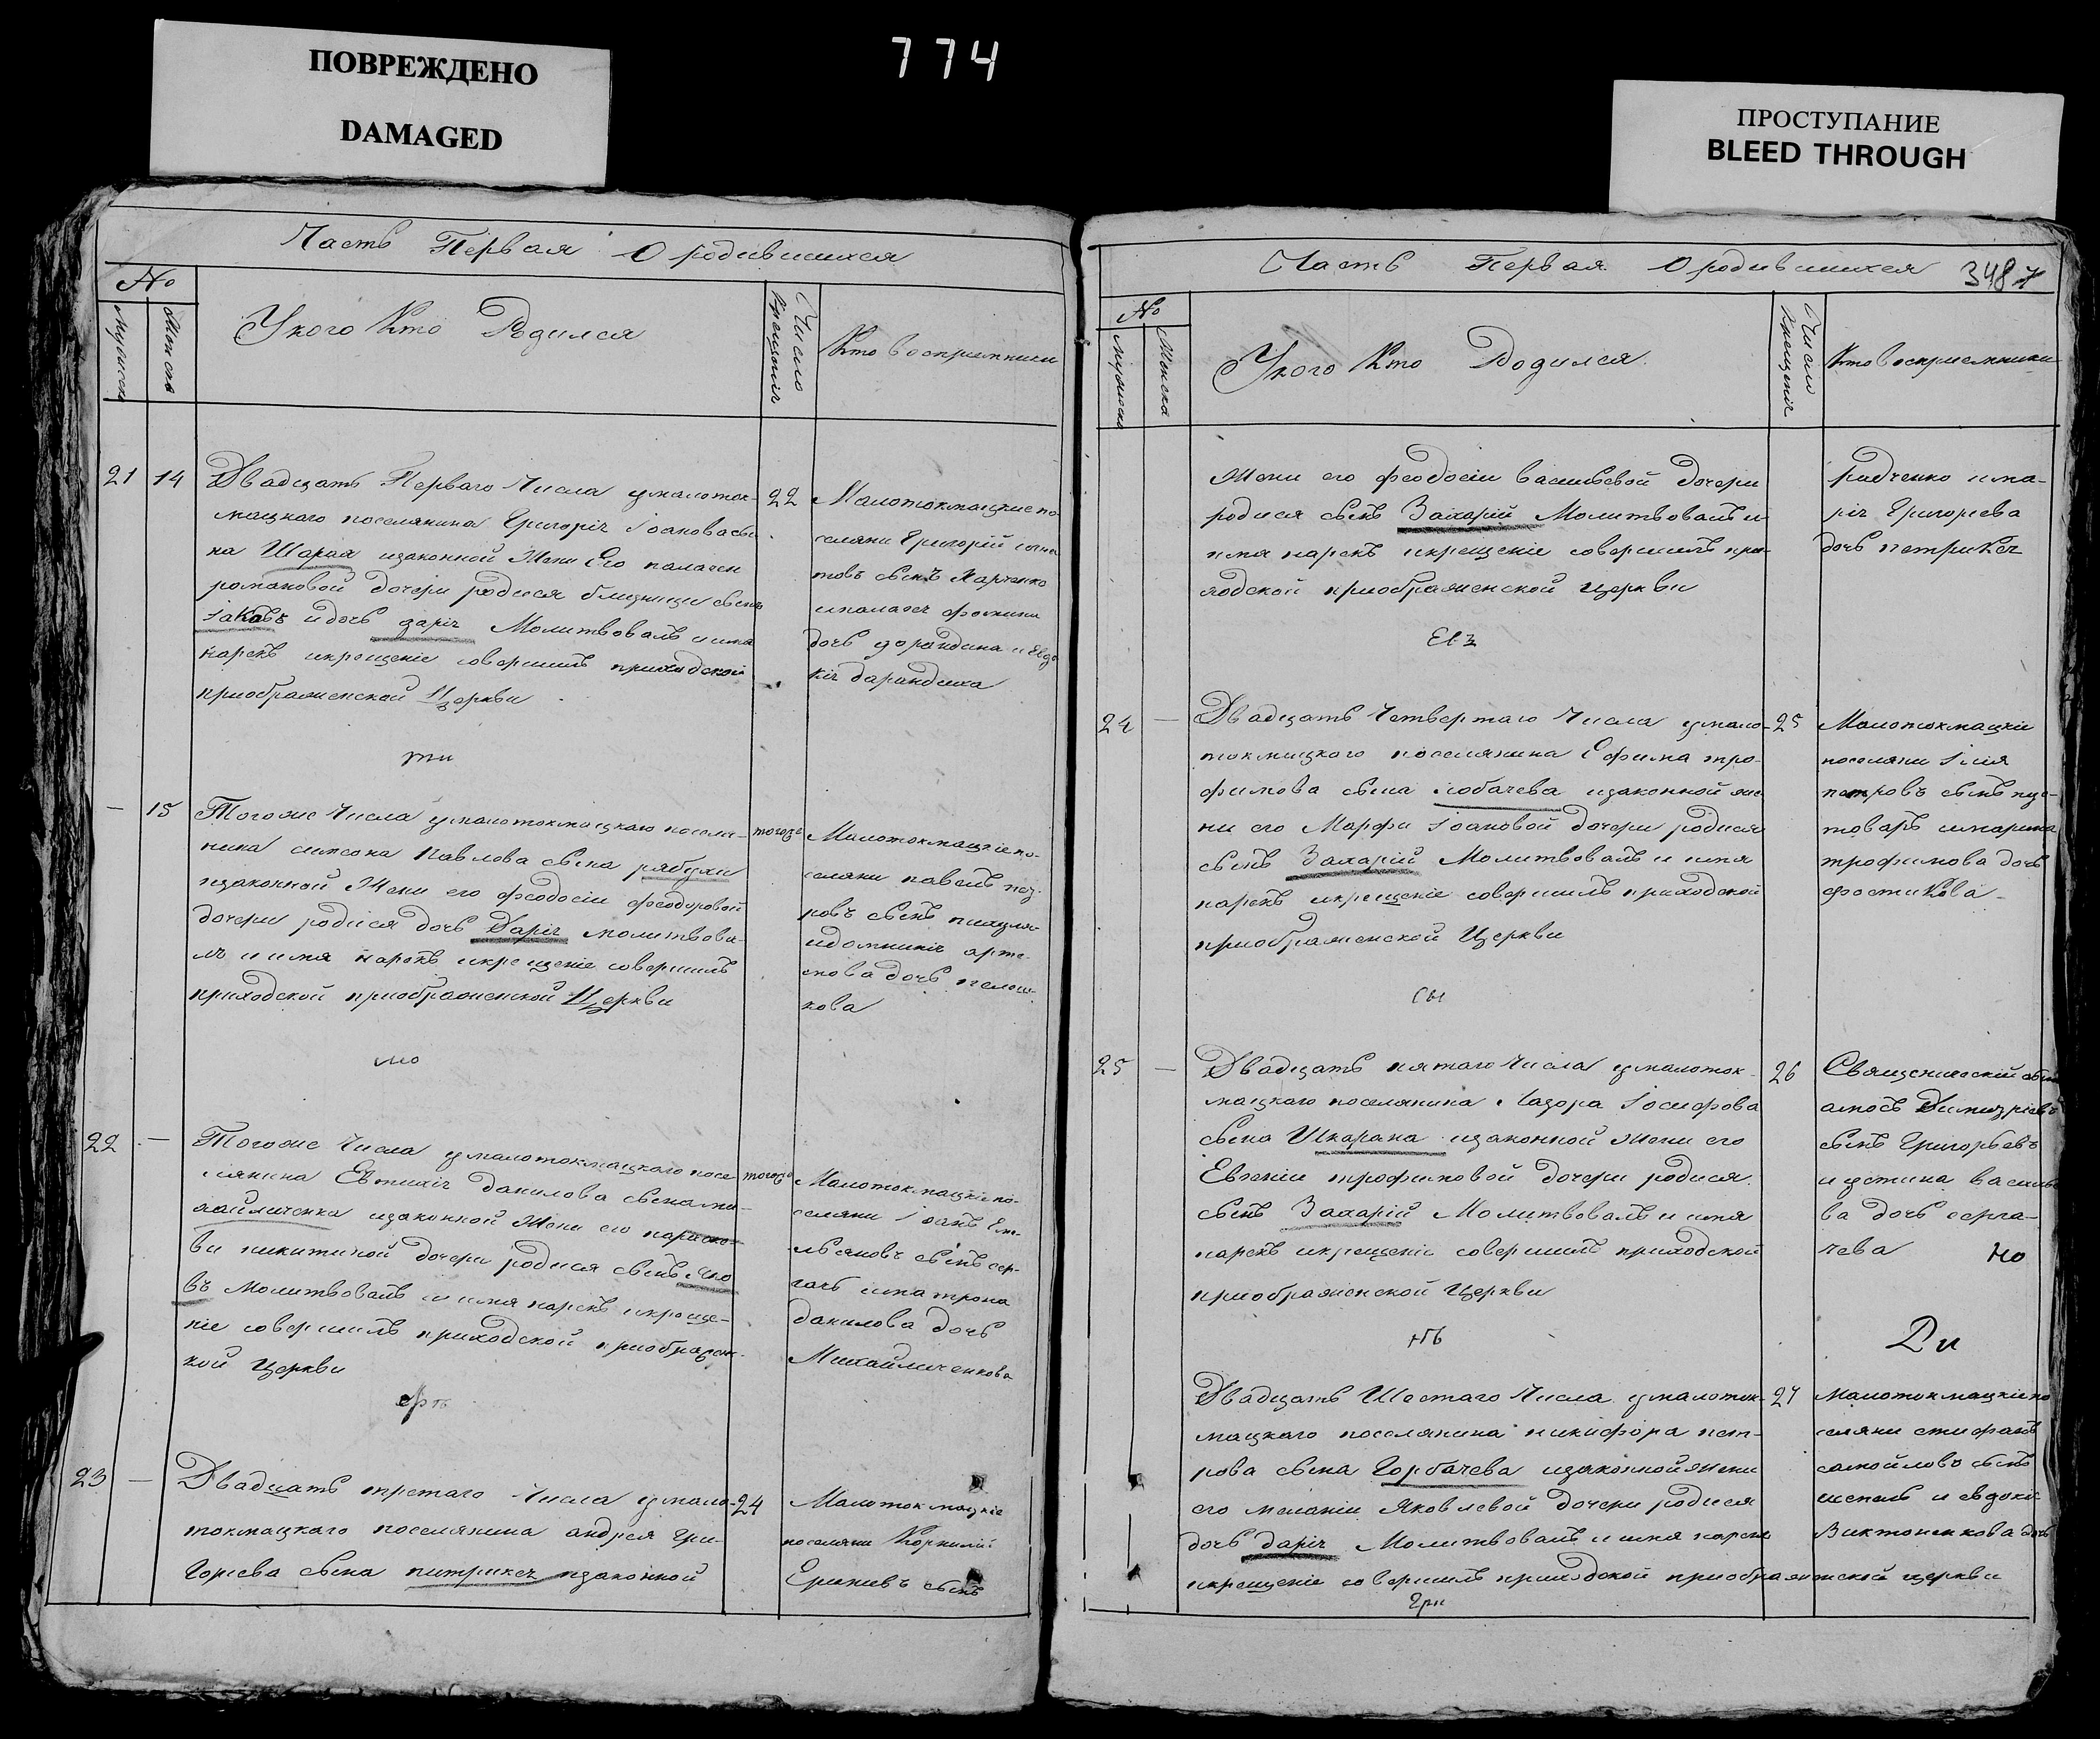 ПОВРЕЖДЕНО
DAMAGED
774
ПРОСТУПАНИЕ
BLEED THROUGH
Часть Первая О родившихся
No
Мужеска
Женска
Укого Кто Родился
Число Крещенія
Кто восприемники
21 14
Двадцать Перваго Числа умалоток-
мацкаго поселянина Григоріч Іоанова сы-
на Шарая изаконной Жени Его палагеи
романовой дочери родися близници сынъ
Іаковъ идочь даріч Молитвовалъ иимя
нарекъ икрещеніе совершилъ приходской
приображенской Церкви
22
Малотокмацкие по-
селяни Григорій
товъ сынъ Харченко
ипалагеч фомина
дочь
кіч
ти
— 15
Тогоже Числа умалотокмацкаго поселя-
нина симеона Павлова сына рябухи
изаконной Жени его феодосіи феодоровой
дочери родися дочь Даріч молитвова-
лъ иимя нарекъ икрещеніе совершилъ
приходской приображенской Церкви
тогоже
Малотокмацкіе по-
селяни павелъ
ровъ сынъ
идомникіч арте-
мова дочь
кова
мо
22 —
Тогоже Числа умалотокмацкаго посе-
лянина Евтихіч данилова сына ми-
хайличенка изаконной Жени его параско-
ви никитиной дочери родися сынъ Яко
въ Молитвовалъ иимя нарекъ икреще-
ніе совершилъ приходской приображенс-
кой Церкви
тогоже
Малотокмацкіе по-
селяни Іоанъ Еме-
льяновъ сынъ сер-
гачъ иматрона
данилова дочь
Михайличенкова
23 —
Двадцать третаго Числа умало-
токмацкаго поселянина андрея Гри-
горіева сына питрикеч изаконной
24
Малотокмацкіе
поселяни Корнилій
сынъ
Часть Первая О родившихся 348
No
Мужеска
Женска
Укого Кто Родился
Число Крещенія
Кто восприемники
Жени его феодосіи васильевой дочери
родися сынъ Захарій Молитвовалъ и
имя нарекъ икрещеніе совершилъ при-
ходской приображенской церкви
радченко има-
річ Григоріева
дочь петрикеч
24 —
Двадцать Четвертаго Числа умало-
токмацкого поселянина Ефима тро-
фимова сына лобачева изаконной же
ни его Марфи Іоановой дочери родися
сынъ Захарій Молитвовалъ и имя
нарекъ икрещеніе совершилъ приходской
приображенской Церкви
25
Малотокмацкіи
поселяни Ілія
петровъ сынъ пус-
товаръ имарина
трофимова дочь
фостикова
сы
25 —
Двадцать пятаго Числа умалоток-
мацкаго поселянина Лазора Іосифова
сына Шкарана изаконной жени его
Евгеніи трофимовой дочери родися
сынъ Захарій Молитвовалъ и имя
нарекъ икрещеніе совершилъ приходской
приображенской Церкви
26
Священическій сынъ
амосъ Димитріевъ
сынъ Григорьевъ
иустина василье
ва дочь серга-
чева но
Ди
Двадцать Шестаго Числа умалоток-
мацкаго поселянина никифора пет-
рова сына Горбачева изаконной жени
его меланіи Яковлевой дочери родися
дочь даріч Молитвовалъ и имя нарекъ
икрещеніе совершилъ приходской приображенской церкви
27
Малотокмацкіе по
селяни стифанъ
самойловъ сынъ
шепель и евдокі
Виктоненкова дочь